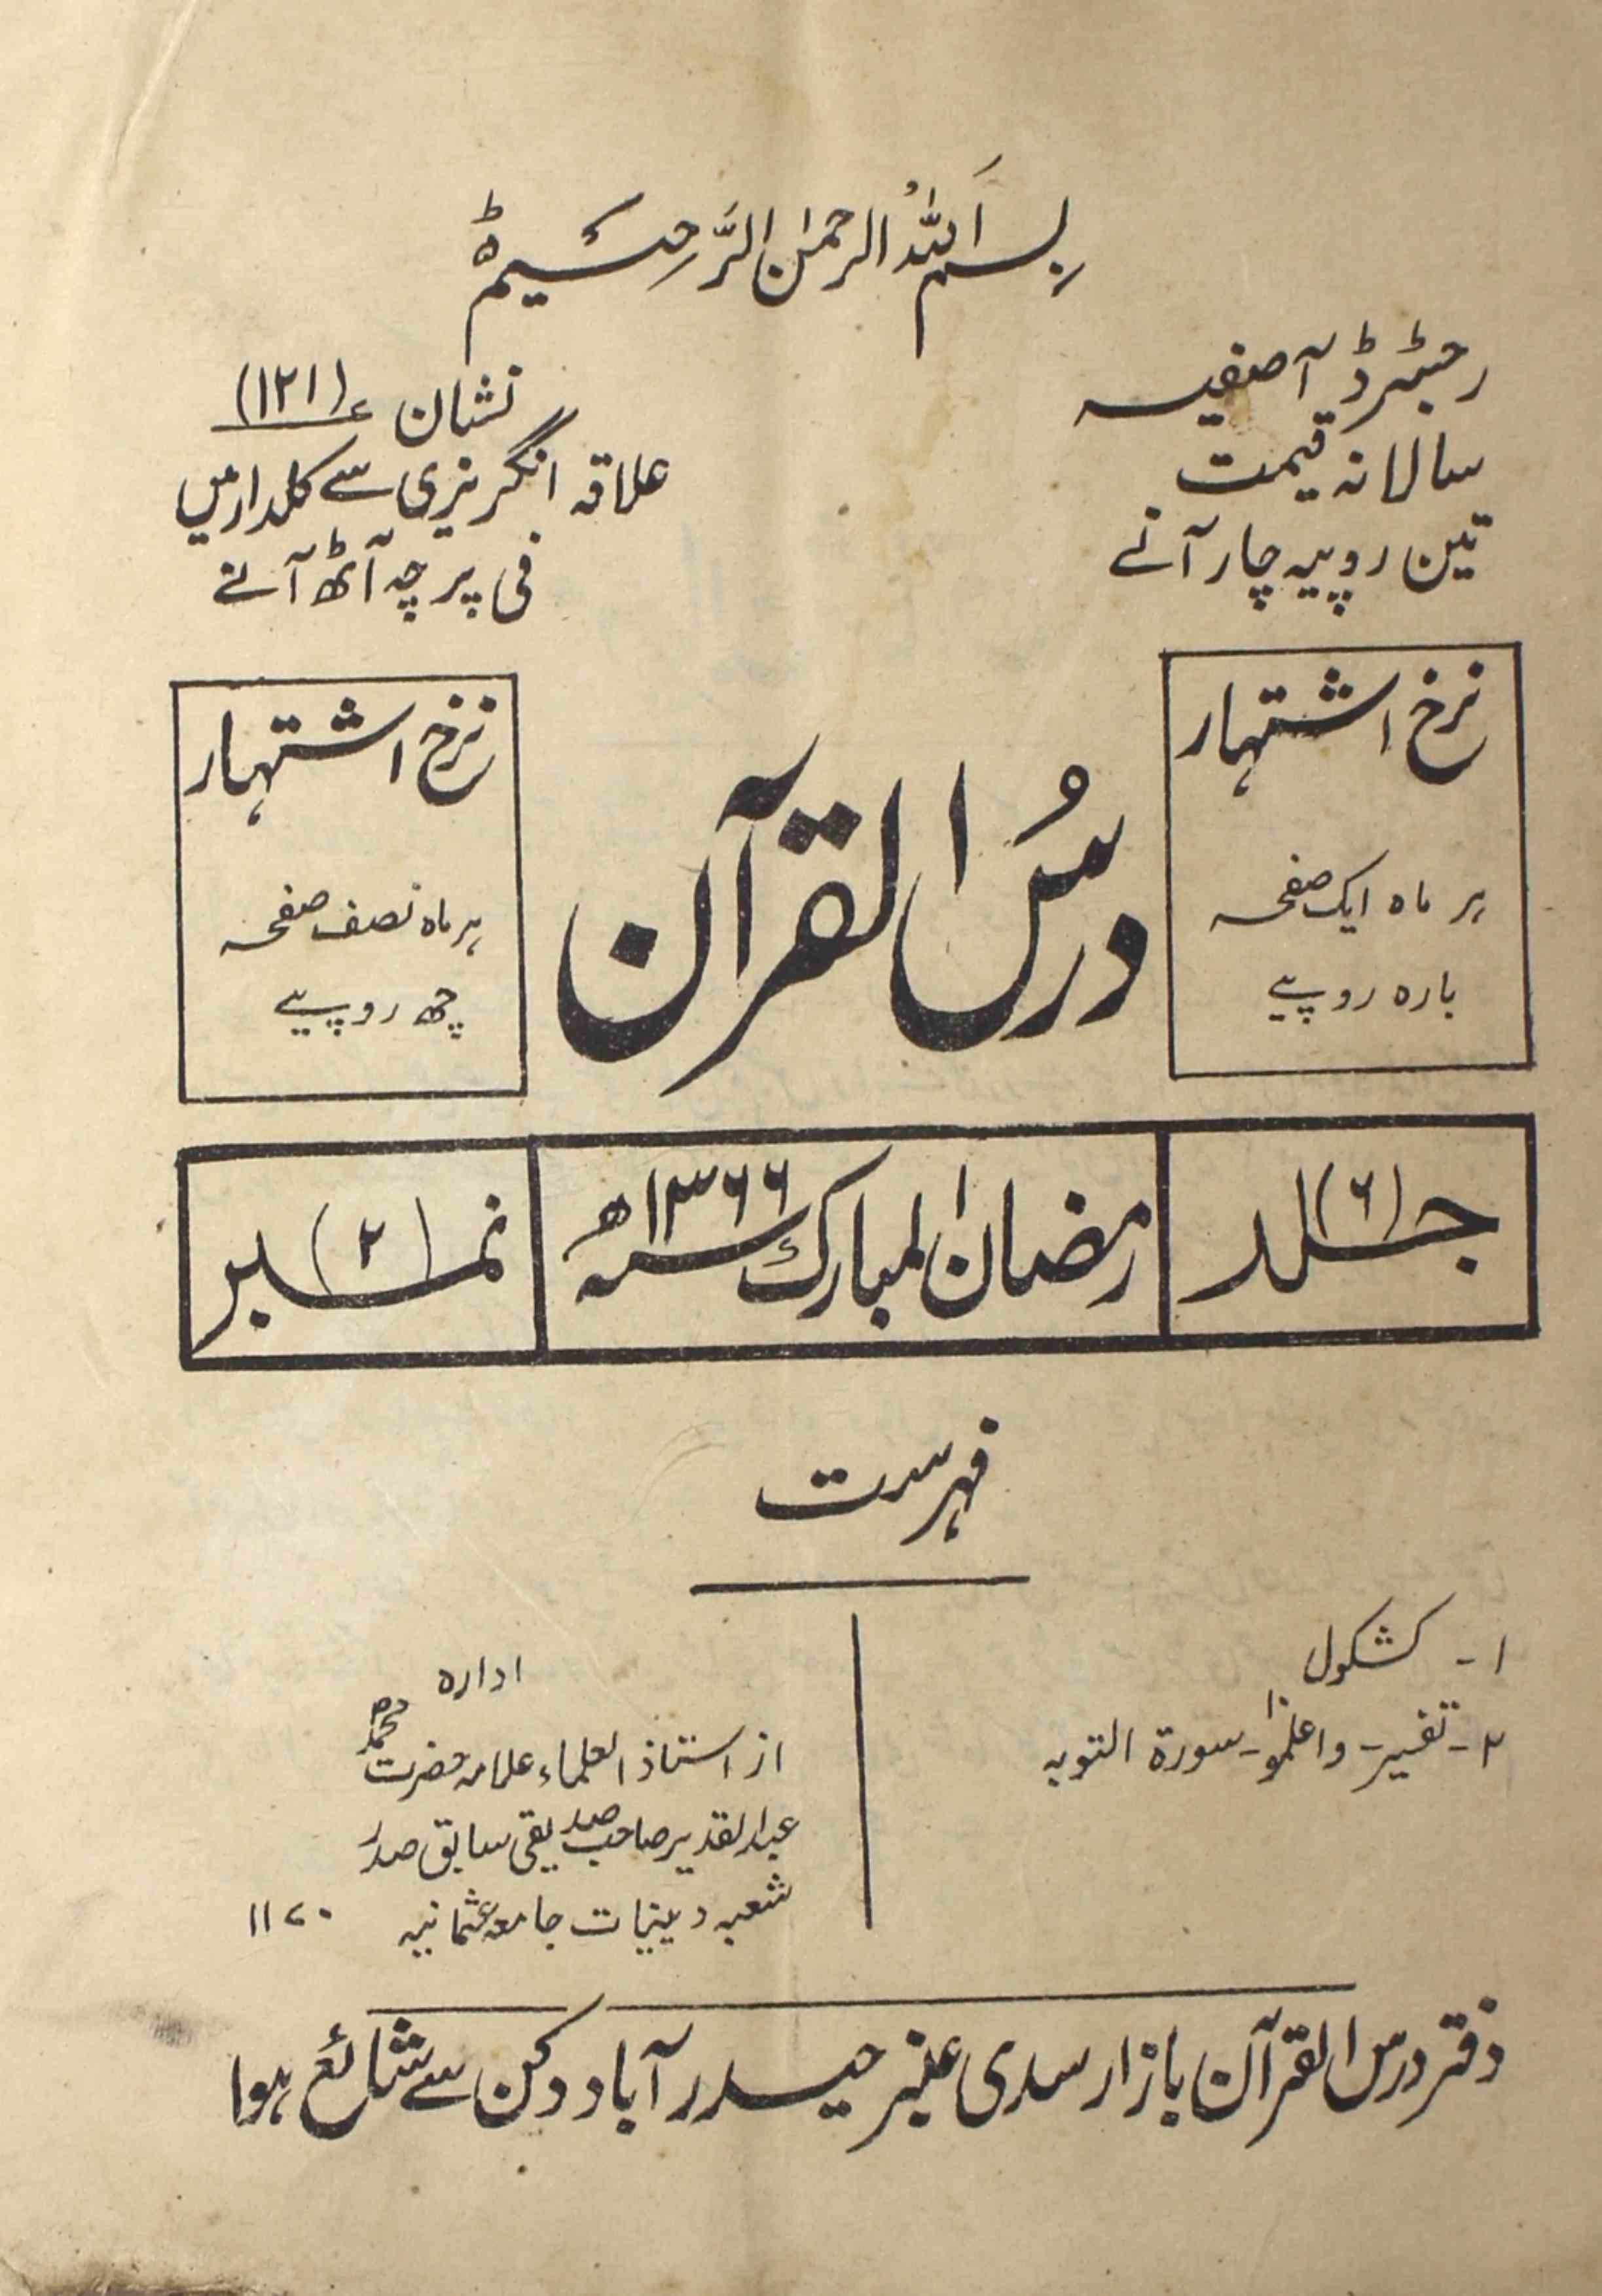 بِسْمِ اللّٰہِ الرحمٰن الرَّحِیْمِ ؕ
رجسٹرڈ آصفیہ
نشان ؏ (۱۲۱)
سالانہ قیمت
علاقہ انگریزی سے کلدار میں
تین روپیہ چار آنے
فی پرچہ آٹھ آنے
نرخ اشتہار
ہر ماہ ایک صفحہ
بارہ روپیے
درسُ القرآن
نرخ اشتہار
ہر ماہ نصف صفحہ
چھ روپیے
جلد (۶)
رمضان المبارک سنہ ۱۳۶۶ھ
نمبر (۲)
فہرست
۱- کشکول
ادارہ
۲- تفسیر - واعلموا - سورۃ التوبہ
از استاذ العلماء علامہ حضرت محمد
عبدالقدیر صاحب صدیقی سابق صدر
شعبہ دینیات جامعہ عثمانیہ
۱۱۷۰
دفتر درس القرآن بازار سدی عنبر حیدرآباد دکن سے شائع ہوا